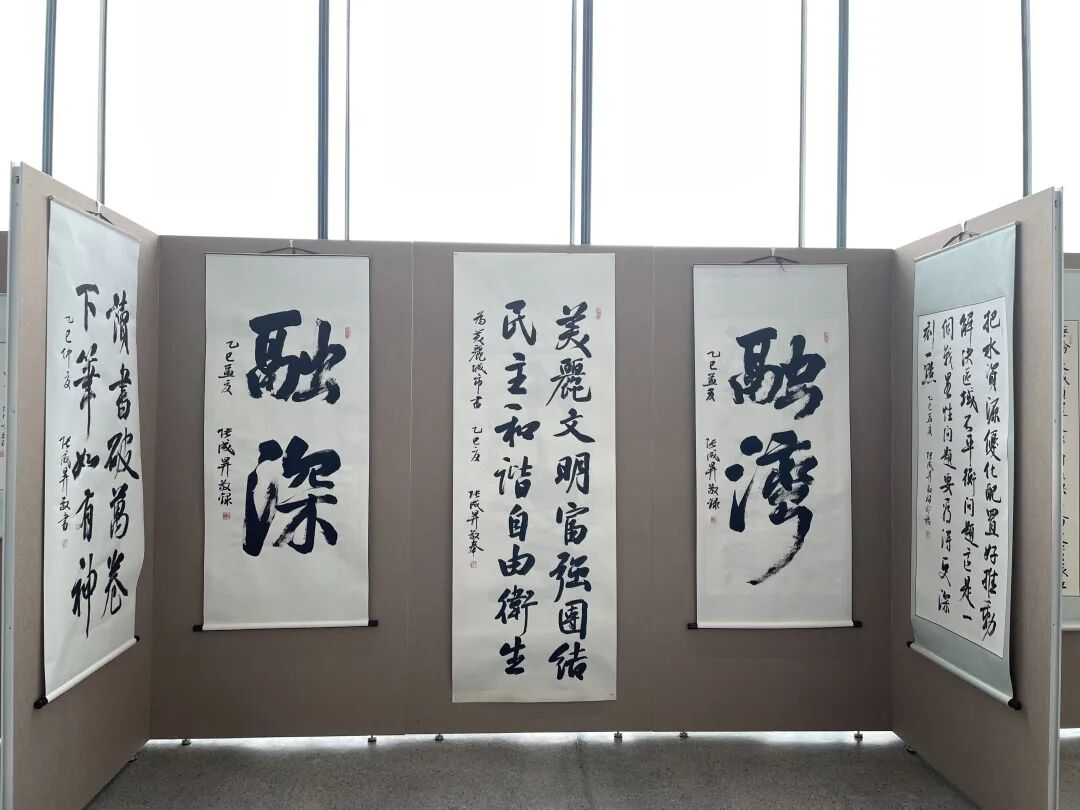 讀書破萬卷
下筆如有神
乙巳仲夏 張成昇敬書
融深
乙巳孟夏 張成昇敬録
美麗文明富强團结
民主和諧自由衛生
為美麗城市書 乙巳夏 張成昇敬奉
融灣
乙巳孟夏 張成昇敬録
把水資源優化配置好推動
解决區域不平衡問題這是一
個戰畧性問題要看得更深
刻一點 乙巳孟夏 張成昇